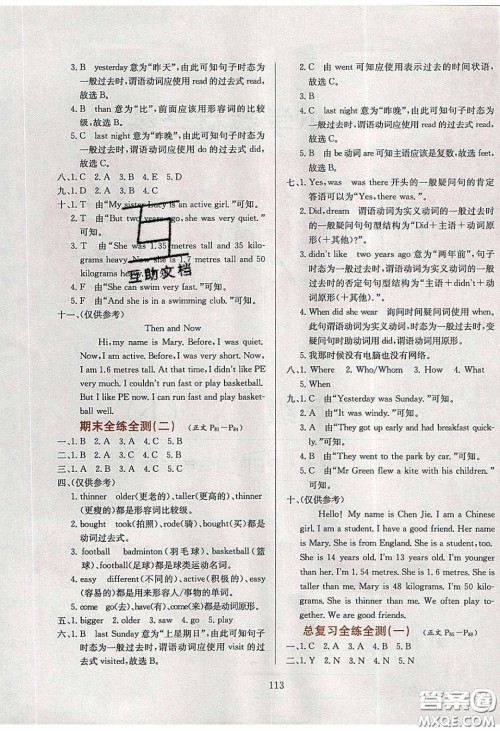 3. B　yesterday 意为“昨天”，由此可知句子时态为
一般过去时，谓语动词应使用 read 的过去式 read，
故选 B。
4. B　than 意为“比”，前面应该用形容词的比较
级，故选 B。
5. C　last night 意为“昨晚”，由此可知句子时态为
一般过去时，谓语动词应使用 do 的过去式 did，
故选 C。
八、1. B　2. A　3. C　4. E　5. D
九、1. D　2. A　3. E　4. C　5. B
十、1. F　由“My sister Lucy is an active girl. ”可知。
2. T　由“But two years ago, she was very quiet. ”
可知。
3. T　由“She was 1.35 metres tall and 35 kilo-
grams heavy. Now she is 1.7 metres tall and 50
kilograms heavy. ”可知。
4. F　由“She can swim very fast. ”可知。
5. F　由“And she is in a swimming club. ”可知。
十一、（仅供参考）
Then and Now
Hi, my name is Mary. Before, I was quiet.
Now, I am very active. Before, I was very short. Now,
I am 1.6 metres tall. At that time, I didn't like PE
now. I couldn't run fast or play basketball.
But I like PE now, I can run fast and play basket-
ball well.
期末全练全测（二）　（正文 P81—P84）
一、1. B　2. A　3. A　4. C　5. B
二、1. B　2. A　3. A　4. C　5. B
三、1. C　2. A　3. A　4. B　5. B
四、（仅供参考）
1. thinner　older（更老的）、taller（更高的）
2. bought　took（拍照）、rode（骑）、bought（买）
都是动词过去式。
3. football　badminton（羽毛球）、basketball（篮
球）、football（足球）都是球类运动名词。
4. easy　different（不同的）、active（积极的）、easy
（容易的）都是用来形容人/事物的单词。
5. come　go（去）、have（有）、come（来）都是动词原形。
五、1. bigger　2. older　3. saw　4. go　5. play
六、1. B　last Sunday 意为“上星期日”，由此可知句子
时态为一般过去时，谓语动词应使用 visit 的过
去式 visited，故选 B。
2. C　由 went 可知应使用表示过去的时间状语，
故选 C。
3. A
4. C　last night 意为“昨晚”，由此可知句子时态为
一般过去时，谓语动词应使用过去式，故选 C。
5. B　由 be 动词 are 可知主语应该是复数，故选 feet，
故选 B。
七、1. Yes, was　was there 开头的一般疑问句的肯定
答语可以为“Yes, there was. ”。
2. Did, dream　谓语动词为实义动词的一般过去
时的一般疑问句句型结构为“Did＋主语＋动词原形
（＋其他）？”。
3. didn't like　two years ago 意为“两年前”，一般过
去时的否定句句型结构为“主语＋didn't＋动词
原形（＋其他）”。
4. When did wear　询问时间疑问词使用 when。
此句谓语动词为实义动词，时态为一般过去时，变
疑问句借助助动词 did，动词用原形。
5. 我那时候没有电脑也没有网络。
八、1. Where　2. Who/Whom　3. How　4. What
5. When
九、1. C　由“Yesterday was Sunday. ”可知。
2. D　由“It was windy. ”可知。
3. A　由“They got up early and had breakfast
quickly. ”可知。
4. B　由“They went to the park by car. ”可知。
5. E　由“Mr Green flew a kite with his children. ”
可知。
十、（仅供参考）
Hello! My name is Chen Jie. I am a Chinese
girl. I am a student. I have a good friend. Her name
is Mary. She is from England. She is a student, too.
She is 14 years old. I'm 13 years old. I am thinner
than Mary. I'm 1.54 metres. She is 1.6 metres. She is
taller than me. Mary is 48 kilograms. I'm 50 kilograms.
She is thinner than me. We often play to-
gether. We are good friends.
总复习全练全测（一）　（正文 P85—P88）
二、1. Y　2. N　3. Y　4. N　5. N
113
互助文档
答案圈
MXQE.COM